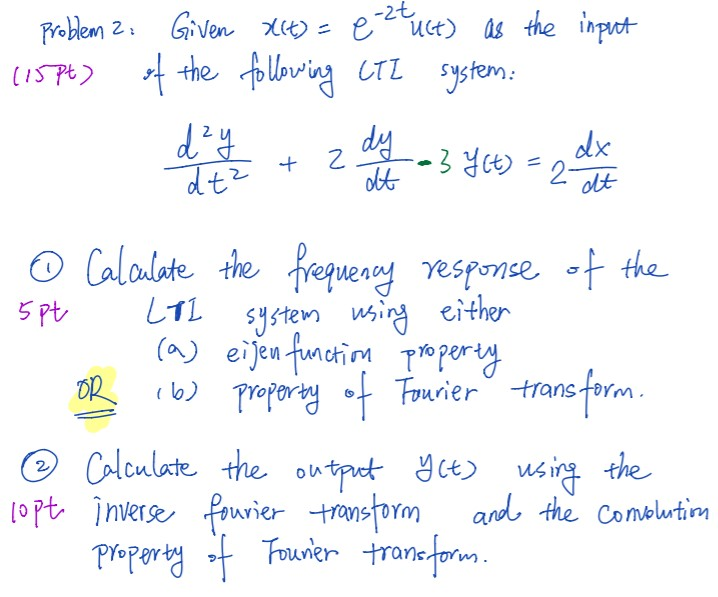 Problem 2: Given x(t) = e^{-2t}u(t) as the input
(15pt) of the following LTI system:
d²y/dt² + 2 dy/dt - 3 y(t) = 2 dx/dt
① Calculate the frequency response of the
5pt LTI system using either
(a) eigenfunction property
OR (b) property of Fourier transform.
② Calculate the output y(t) using the
10pt inverse fourier transform and the convolution
property of Fourier transform.